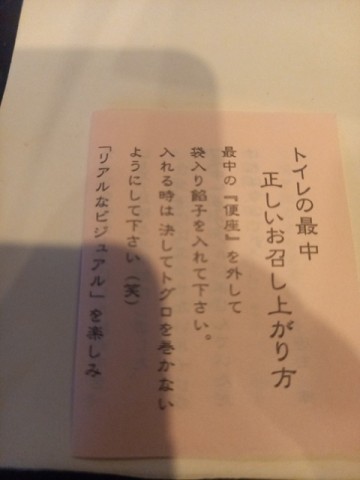 トイレの最中
正しいお召し上がり方
最中の『便座』を外して
袋入り餡子を入れて下さい。
入れる時は決してトグロを巻かない
ようにして下さい（笑）
「リアルなビジュアル」を楽しみ